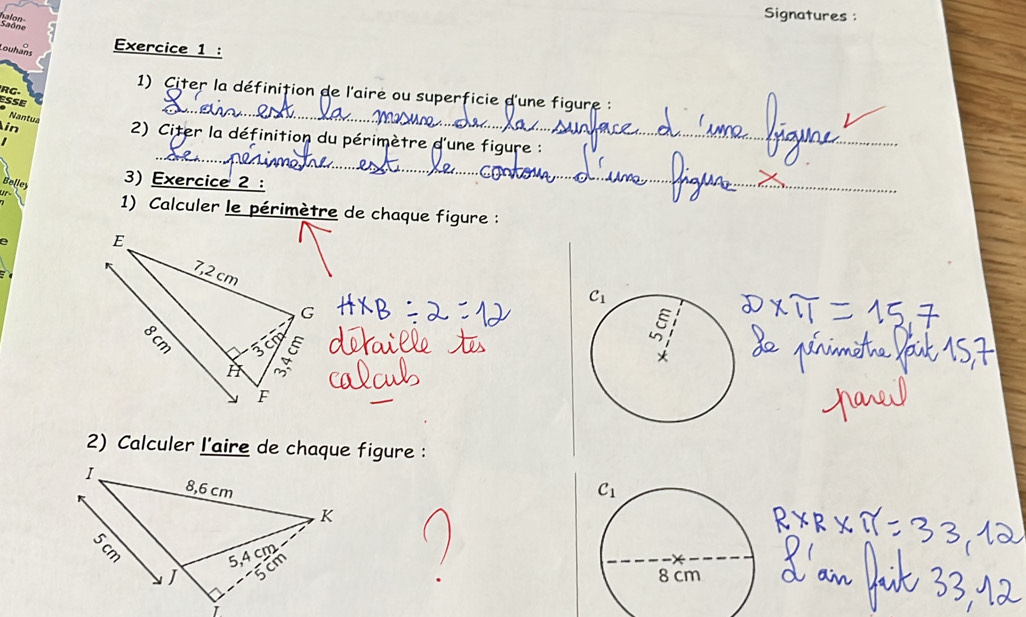 halon-
Saône
Louhans
RG-
ESSE
Nantua
Ain
Belley
Signatures :
Exercice 1 :
1) Citer la définition de l'aire ou superficie d'une figure :
L'air est la mesure de la surface d'une figure
2) Citer la définition du périmètre d'une figure :
Le périmètre est le contour d'une figure
3) Exercice 2 :
1) Calculer le périmètre de chaque figure :
E
7,2 cm
G
8 cm
3 cm
3,4 cm
H
F
H×B ÷ 2 = 12
détaille tes
calculs
C1
5 cm
D × π = 15,7
Le périmètre fait 15,7
pareil
2) Calculer l'aire de chaque figure :
I
8,6 cm
K
5 cm
5,4 cm
5 cm
J
?
C1
8 cm
R×R×π = 33,12
L'air fait 33,12